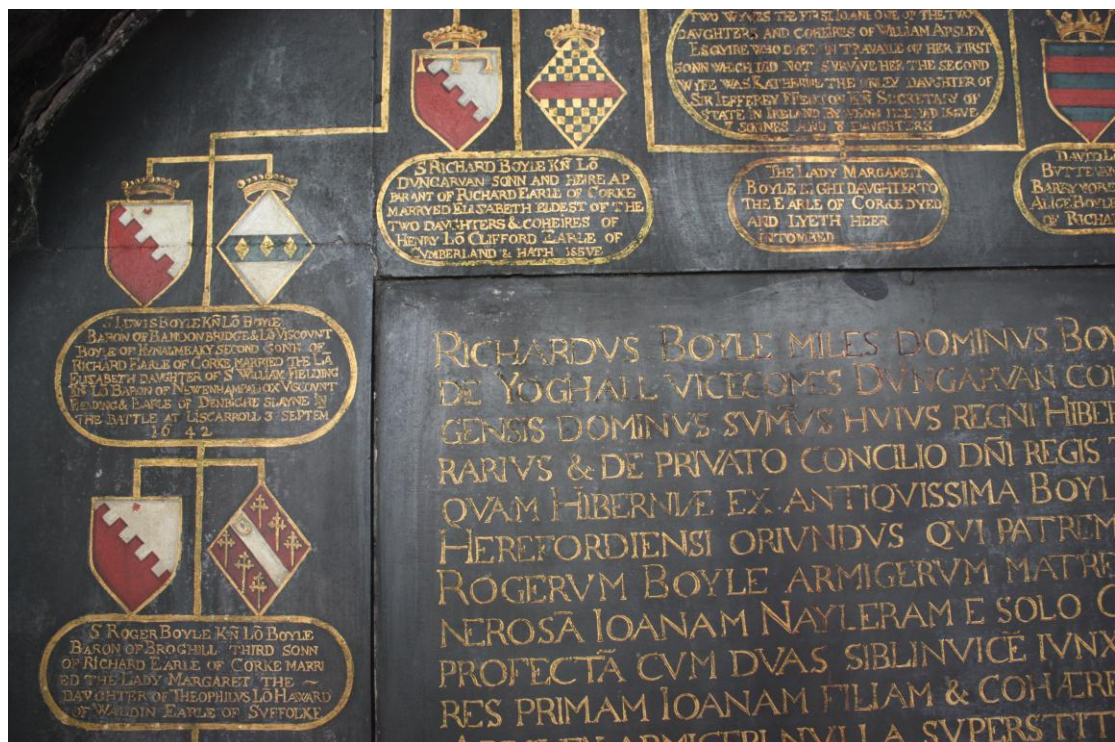 TWO WYVES THE FIRST IOANE ONE OF THE TWO
DAVGHTERS AND COHEIRES OF WILLIAM APSLEY
ESQVIRE WHO DYED IN TRAVAILE OF HER FIRST
SONN WHICH DID NOT SVRVIVE HER THE SECOND
WYFE WAS KATHERINE THE ONLEY DAVGHTER OF
SIR IEFFEREY FFENTON KÑ SECRETARY OF
STATE IN IRELAND BY WHOM HEE HAD ISSVE
SONNES AND 8 DAVGHTERS
S RICHARD BOYLE KÑ LÕ
DVNGARVAN SONN AND HEIRE AP
PARANT OF RICHARD EARLE OF CORKE
MARRYED ELISABETH ELDEST OF THE
TWO DAVGHTERS & COHEIRES OF
HENRY LÕ CLIFFORD EARLE OF
CVMBERLAND & HATH ISSVE
THE LADY MARGARETT
BOYLE EIGHT DAVGHTER TO
THE EARLE OF CORKE DYED
AND LYETH HEER
INTOMBED
DAVID L
BVTTEVAN
BARRY
ALICE BOYL
OF RICHA
S LEWIS BOYLE KÑ LÕ BOYLE
BARON OF BANDONBRIDGE & LÕ VISCOVNT
BOYLE OF KYNALMEAKY SECOND SONN OF
RICHARD EARLE OF CORKE MARRIED THE LA
ELISABETH DAVGHTER OF S WILLIAM FIELDING
KÑ LÕ BARON OF NEWENHAMPADOX VISCOVNT
FIELDING & EARLE OF DENBIGHE SLAYNE IN
THE BATTLE AT LISCARROLL 3 SEPTEM
1642
S ROGER BOYLE KÑ LÕ BOYLE
BARON OF BROGHILL THIRD SONN
OF RICHARD EARLE OF CORKE MARRI
ED THE LADY MARGARET THE ~
DAVGHTER OF THEOPHILVS LÕ HAWARD
OF WALDIN EARLE OF SVFFOLKE
RICHARDVS BOYLE MILES DOMINVS BOY
DE YOGHALL VICECOMES DVNGARVAN CO
GENSIS DOMINVS SVM̃VS HVIVS REGNI HIBER
RARIVS & DE PRIVATO CONCILIO DÑI REGIS
QVAM HIBERNIÆ EX ANTIQVISSIMA BOYL
HEREFORDIENSI ORIVNDVS QVI PATREM
ROGERVM BOYLE ARMIGERVM MATRE
NEROSÃ IOANAM NAYLERAM E SOLO C
PROFECTÃ CVM DVAS SIBI INVICẼ IVNX
RES PRIMAM IOANAM FILIAM & COHÆRE
APSLEY ARMIGERI NVLLA SVPERSTIT